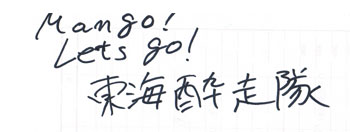 Mango!
Lets go!
東海酔走隊